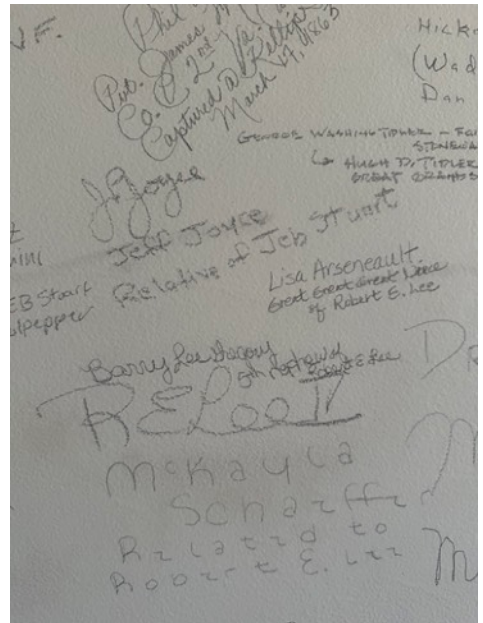 V.E.
Phil
Pvt. James
Co. C 2nd Va.
Captured @
March 17, 1863
Hick
(Wad
Dan
George Washington
Hugh D. Tidler
Great Grands
J. Joyce
Jeff Joyce
Relative of Jeb Stuart
EB Stuart
ulpepper
Lisa Arseneault
Great Great Great Niece
of Robert E. Lee
Barry Lee
5th nephew of
Robert E Lee
RELee IV
McKayla
Scharffz
Related to
Robert E. Lee